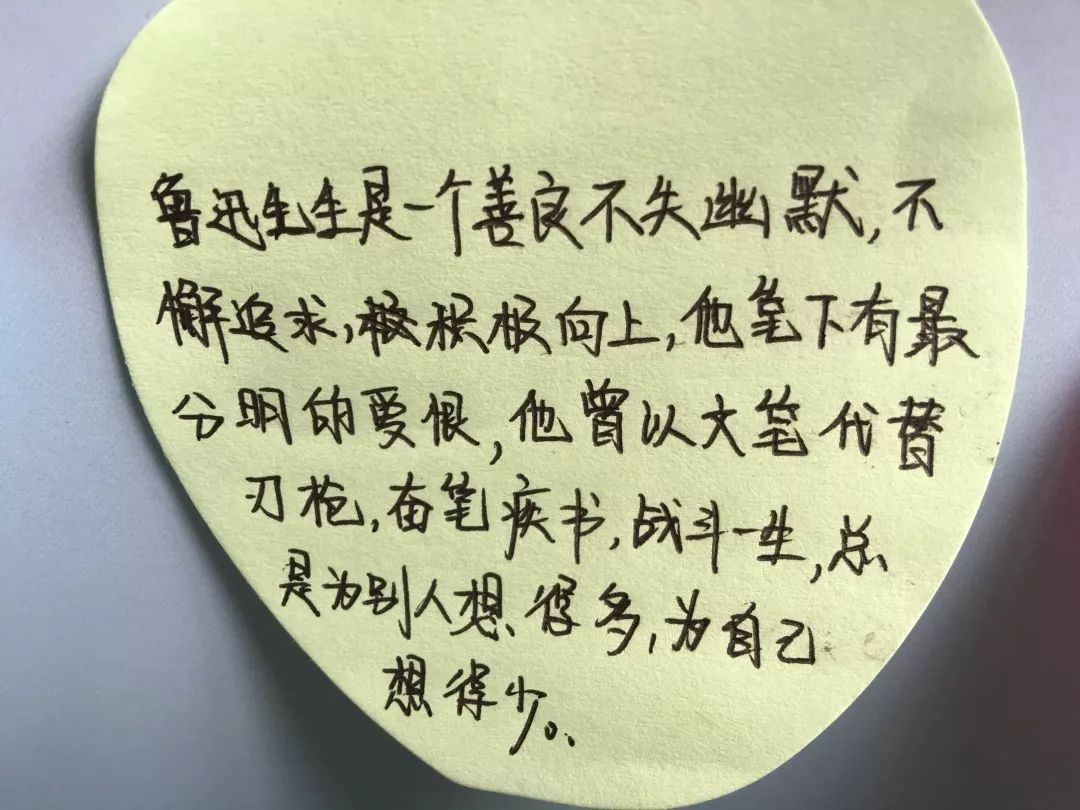 鲁迅先生是一个善良不失幽默,不
懈追求,极积极向上,他笔下有最
分明的爱恨,他曾以文笔代替
刀枪,奋笔疾书,战斗一生,总
是为别人想得多,为自己
想得少。